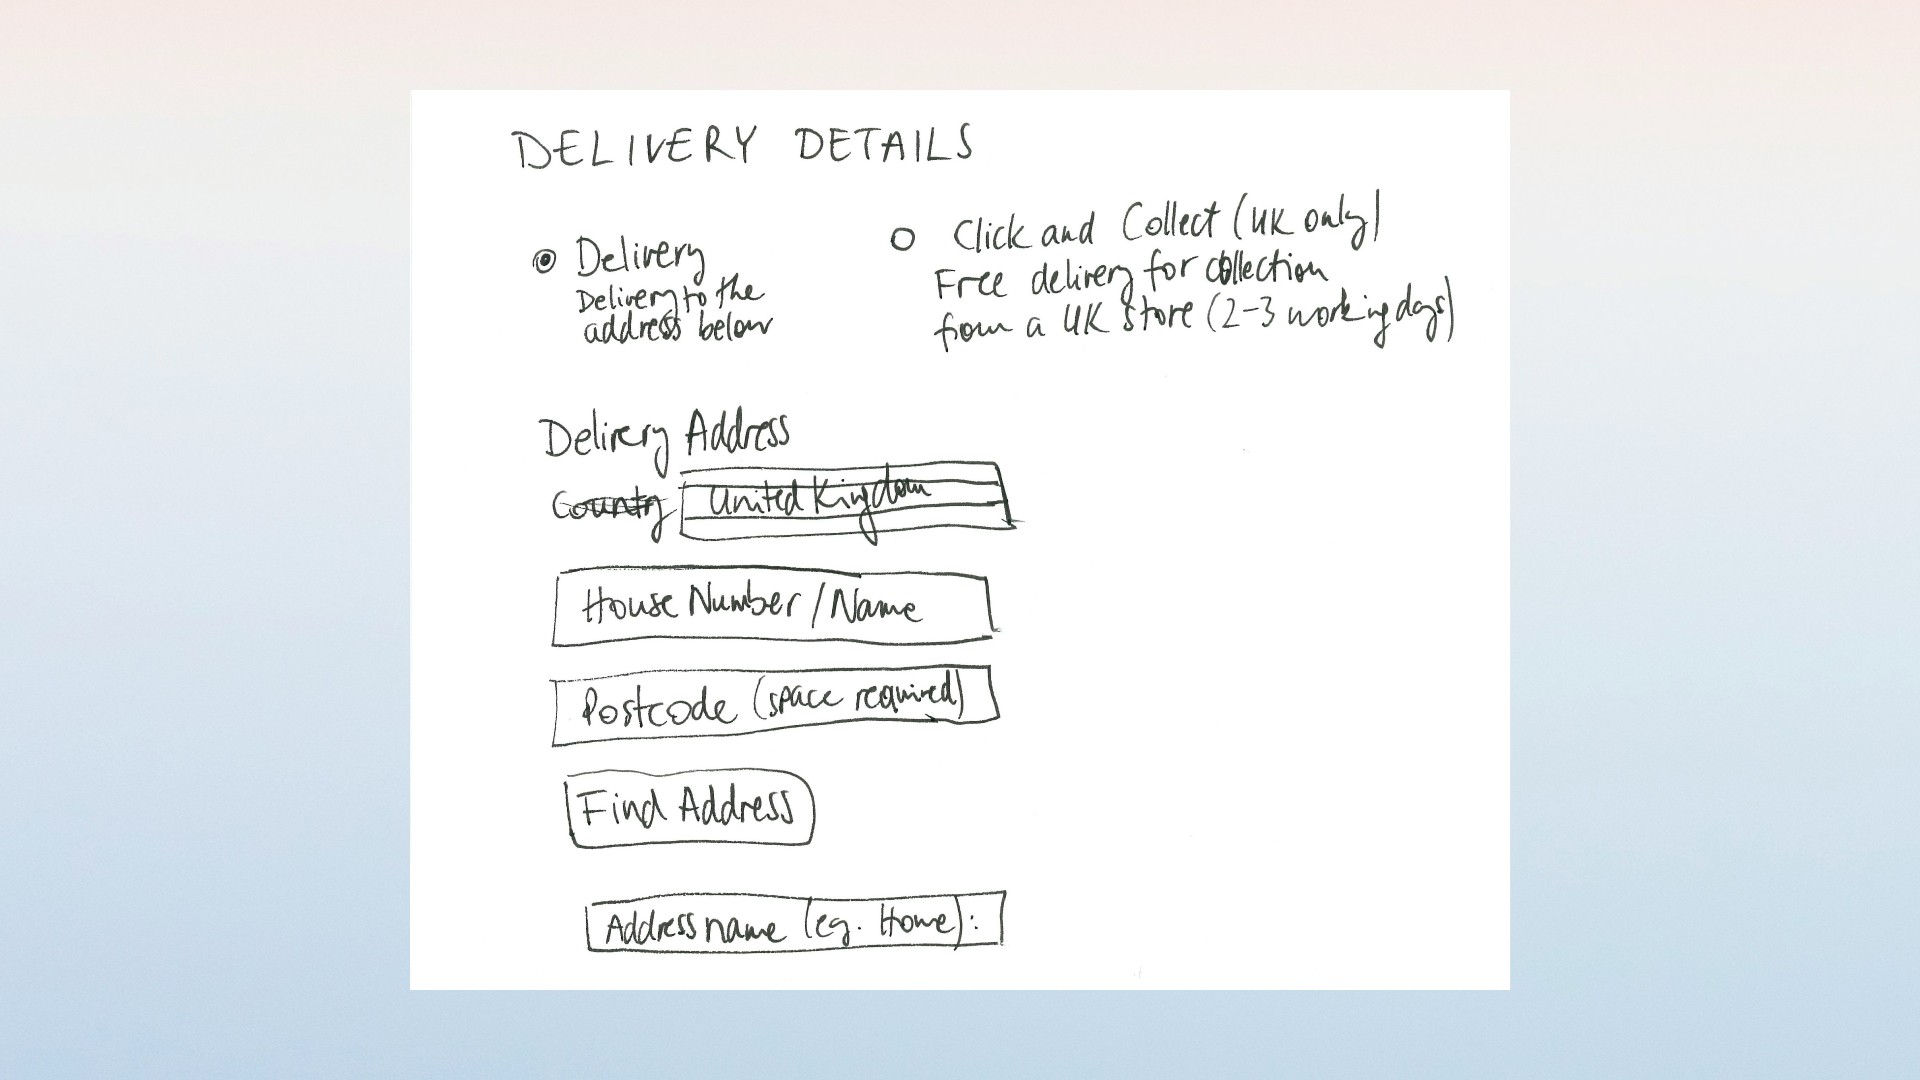 DELIVERY DETAILS
Delivery
Delivery to the
address below
Click and Collect (UK only)
Free delivery for collection
from a UK store (2-3 working days)
Delivery Address
Country United Kingdom
House Number / Name
Postcode (space required)
Find Address
Address name (eg. Home):